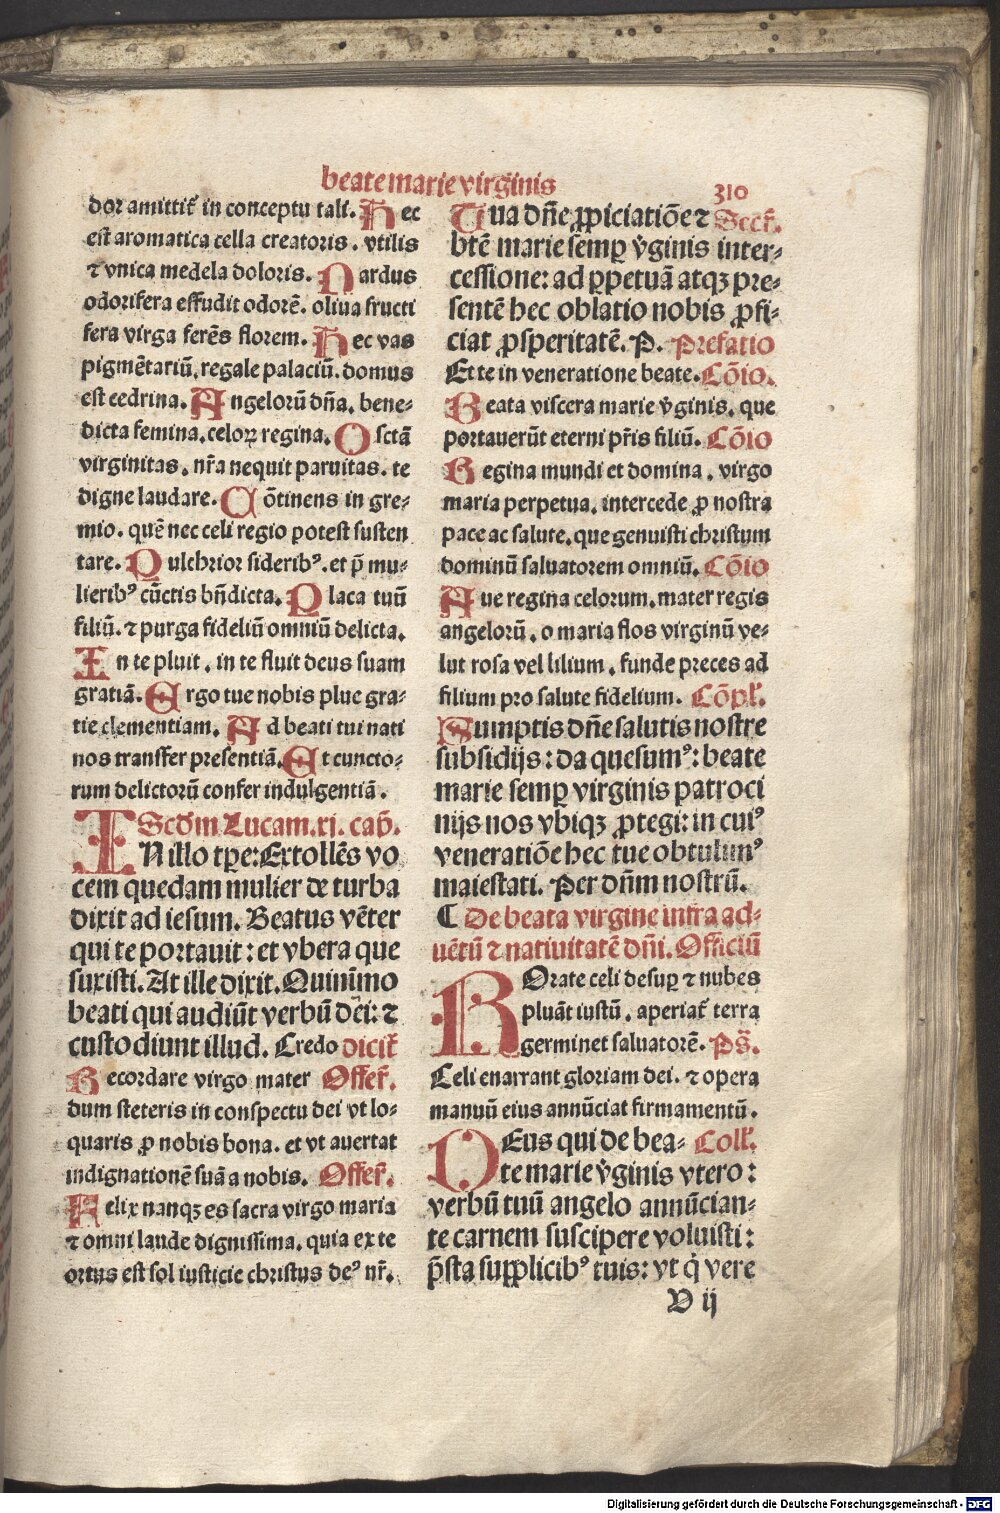 beate marie virginis
310
dor amittit᷑ in conceptu tali. Hec
est aromatica cella creatoris. vtilis
⁊ vnica medela doloris. Nardus
odorifera effudit odorē. oliua fructi
fera virga ferēs florem. Hec vas
pigmētariū, regale palaciū. domus
est cedrina. Angelorū dn̄a, bene-
dicta femina, celoꝝ regina. O sctā
virginitas. nr̄a nequit paruitas. te
digne laudare. Cōtinens in gre-
mio. quē nec celi regio potest susten
tare. Pulchrior siderib⁹. et p̄ mu-
lierib⁹ cūctis bn̄dicta. Placa tuū
filiū. ⁊ purga fideliū omniū delicta.
In te pluit. in te fluit deus suam
gratiā. Ergo tue nobis plue gra-
tie clementiam. Ad beati tui nati
nos transfer presentiā. Et cuncto-
rum delictorū confer indulgentiā.
Scd̄m Lucam. xj. cap̄.
IN illo tp̄e: Extollēs vo
cem quedam mulier de turba
dixit ad iesum. Beatus vēter
qui te portauit: et vbera que
suxisti. At ille dixit. Quinīmo
beati qui audiūt verbū dei: ⁊
custodiunt illud. Credo dicit᷑
Recordare virgo mater Offer̄.
dum steteris in conspectu dei vt lo-
quaris ꝓ nobis bona. et vt auertat
indignationē suā a nobis. Offer̄.
Felix nanqꝫ es sacra virgo maria
⁊ omni laude dignissima. quia ex te
ortus est sol iusticie christus de⁹ nr̄.
Tua dn̄e ꝓpiciatiōe ⁊ Secr̄.
btē marie semꝑ v̄ginis inter-
cessione: ad ꝑpetuā atqꝫ pre-
sentē hec oblatio nobis ꝓfi-
ciat ꝓsperitatē. P. Prefatio
Et te in veneratione beate. Cōio.
Beata viscera marie v̄ginis, que
portauerūt eterni pr̄is filiū. Cōio
Regina mundi et domina, virgo
maria perpetua, intercede ꝓ nostra
pace ac salute, que genuisti christum
dominū saluatorem omniū. Cōio
Aue regina celorum, mater regis
angelorū, o maria flos virginū ve-
lut rosa vel lilium, funde preces ad
filium pro salute fidelium. Cōpl̄.
Sumptis dn̄e salutis nostre
subsidijs: da quesum⁹: beate
marie semꝑ virginis patroci
nijs nos vbiqꝫ ꝓtegi: in cui⁹
veneratiōe hec tue obtulim⁹
maiestati. Per dn̄m nostrū.
C De beata virgine infra ad-
uētū ⁊ natiuitatē dn̄i. Officiū
ROrate celi desuꝑ ⁊ nubes
pluāt iustū, aperiat᷑ terra
germinet saluatorē. Ps̄.
Celi enarrant gloriam dei. ⁊ opera
manuū eius annūciat firmamentū.
DEus qui de bea- Coll̄.
te marie v̄ginis vtero:
verbū tuū angelo annūcian-
te carnem suscipere voluisti:
p̄sta supplicib⁹ tuis: vt q̇ vere
V ij
Digitalisierung gefördert durch die Deutsche Forschungsgemeinschaft - DFG